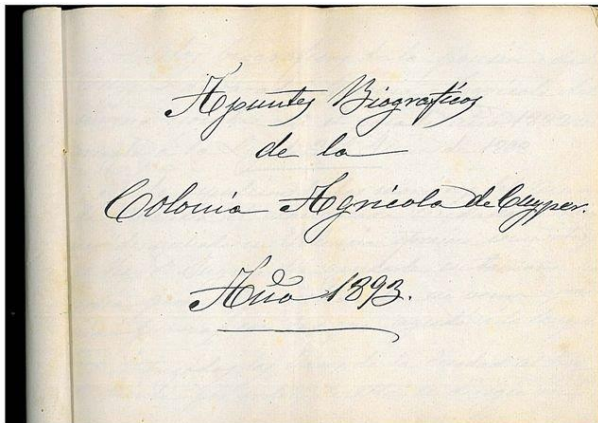 Apuntes Biograficos
de la
Colonia Agricola de Cuyper.
Año 1893.